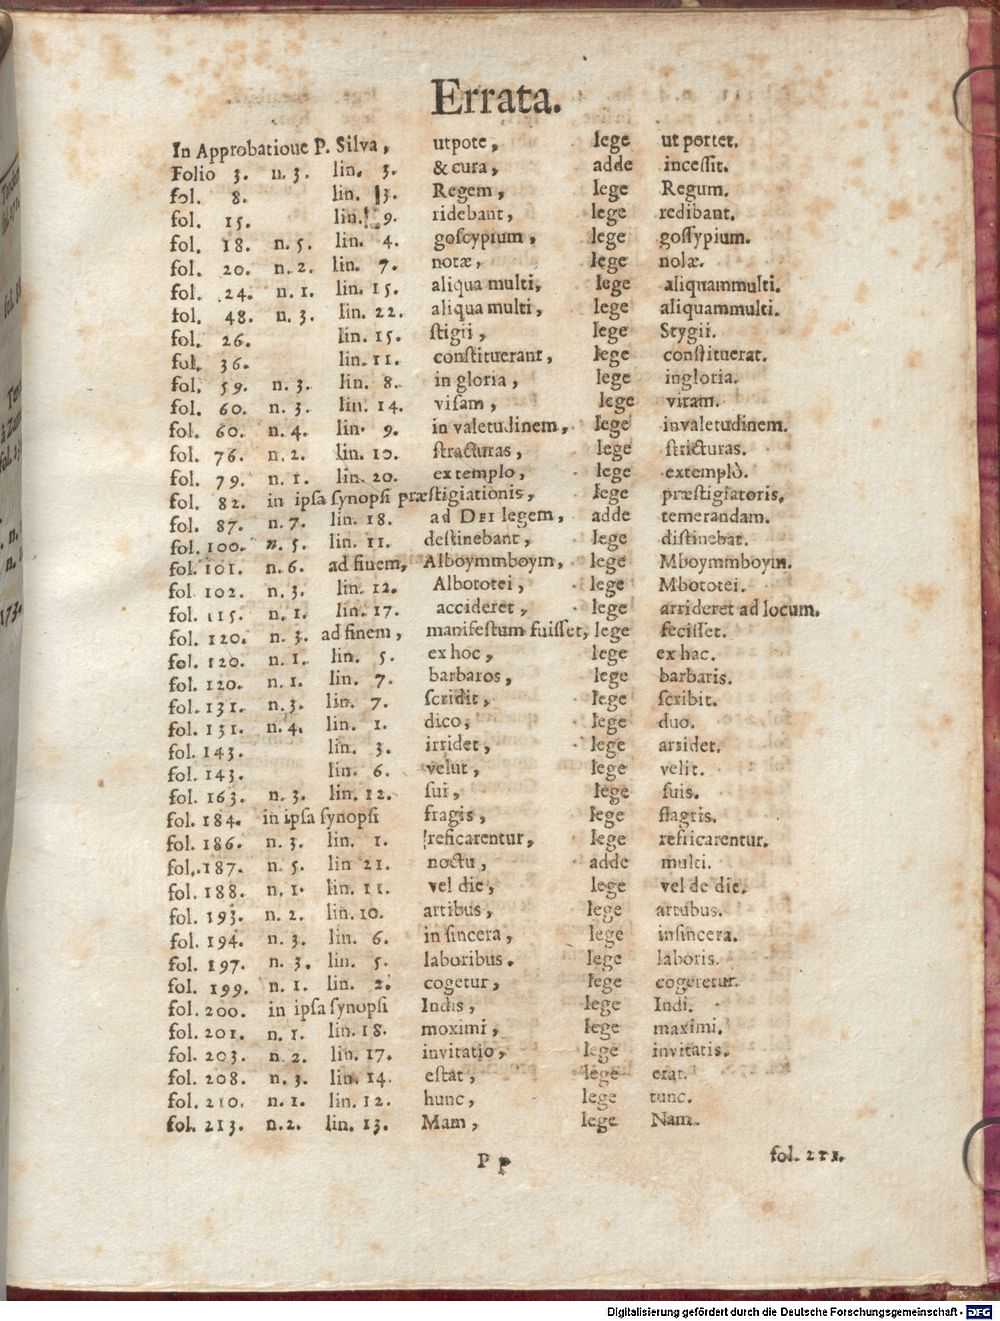 Errata.
In Approbatioue P. Silva, utpote, lege ut portet.
Folio 3. n. 3. lin. 3. & cura, adde incessit.
fol. 8. lin. 3. Regem, lege Regum.
fol. 15. lin. 9. ridebant, lege redibant.
fol. 18. n. 5. lin. 4. goscypium, lege gossypium.
fol. 20. n. 2. lin. 7. notæ, lege nolæ.
fol. 24. n. 1. lin. 15. aliqua multi, lege aliquammulti.
fol. 48. n. 3. lin. 22. aliqua multi, lege aliquammulti.
fol. 26. lin. 15. stigii, lege Stygii.
fol. 36. lin. 11. constituerant, lege constituerat.
fol. 59. n. 3. lin. 8. in gloria, lege ingloria.
fol. 60. n. 3. lin. 14. visam, lege vitam.
fol. 60. n. 4. lin. 9. in valetudinem, lege invaletudinem.
fol. 76. n. 2. lin. 10. stracturas, lege stricturas.
fol. 79. n. 1. lin. 20. ex templo, lege extemplò.
fol. 82. in ipsa synopsi præstigiationis, lege præstigiatoris,
fol. 87. n. 7. lin. 18. ad DEI legem, adde temerandam.
fol. 100. n. 5. lin. 11. destinebant, lege distinebat.
fol. 101. n. 6. ad finem, Alboymmboym, lege Mboymmboym.
fol. 102. n. 3. lin. 12. Albototei, lege Mbototei.
fol. 115. n. 1. lin. 17. accideret, lege arrideret ad locum.
fol. 120. n. 3. ad finem, manifestum fuisset, lege fecisset.
fol. 120. n. 1. lin. 5. ex hoc, lege ex hac.
fol. 120. n. 1. lin. 7. barbaros, lege barbaris.
fol. 131. n. 3. lin. 7. scridit, lege scribit.
fol. 131. n. 4. lin. 1. dico, lege duo.
fol. 143. lin. 3. irridet, lege arridet.
fol. 143. lin. 6. velut, lege velit.
fol. 163. n. 3. lin. 12. sui, lege suis.
fol. 184. in ipsa synopsi fragis, lege flagris.
fol. 186. n. 3. lin. 1. reficarentur, lege refricarentur.
fol. 187. n. 5. lin 21. noctu, adde multi.
fol. 188. n. 1. lin. 11. vel die, lege vel de die.
fol. 193. n. 2. lin. 10. artibus, lege artubus.
fol. 194. n. 3. lin. 6. in sincera, lege insincera.
fol. 197. n. 3. lin. 5. laboribus. lege laboris.
fol. 199. n. 1. lin. 2. cogetur, lege cogeretur.
fol. 200. in ipsa synopsi Indis, lege Indi.
fol. 201. n. 1. lin. 18. moximi, lege maximi.
fol. 203. n. 2. lin. 17. invitatio, lege invitatis.
fol. 208. n. 3. lin. 14. estat, lege erat.
fol. 210. n. 1. lin. 12. hunc, lege tunc.
fol. 213. n. 2. lin. 13. Mam, lege Nam.
P p fol. 211.
Digitalisierung gefördert durch die Deutsche Forschungsgemeinschaft - DFG